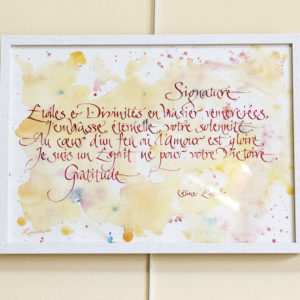 Signature
Etoiles & Divinités en brasier remerciées,
J'embrasse, éternelle, votre solennité.
Au cœur d'un feu où l'Amour est gloire,
Je suis un Esprit né pour votre Victoire.
Gratitude